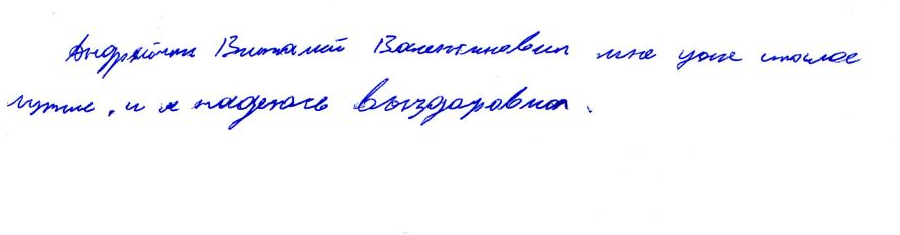 Андрейчик Виталий Валентинович мне уже стало
лучше, и я надеюсь выздоровлю.